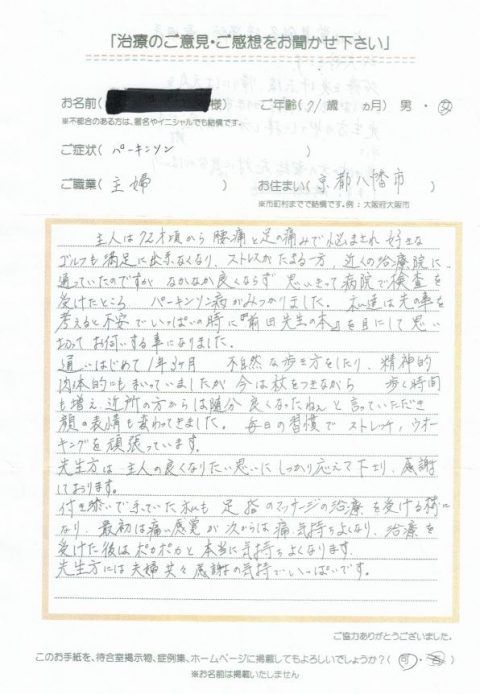 「治療のご意見・ご感想をお聞かせ下さい」
お名前( 様) ご年齢(71歳 ヵ月) 男・女
※不都合のある方は、匿名やイニシャルでも結構です。
ご症状(パーキンソン)
ご職業(主婦) お住まい(京都八幡市)
※市町村までで結構です。例:大阪府大阪市
主人は72才頃から腰痛と足の痛みで悩まされ好きな
ゴルフも満足に出来なくなり、ストレスがたまる一方、近くの治療院に
通っていたのですがなかなか良くならず 思いきって病院で検査を
受けたところ パーキンソン病がみつかりました。私達は先の事を
考えると不安でいっぱいの時に『前田先生の本』を目にして思い
切ってお伺いする事になりました。
通いはじめて1年3ヶ月 不自然な歩き方をしたり、精神的
肉体的にもまいっていましたが今は杖をつきながら 歩く時間
も増え、近所の方からは随分良くなったねぇと言っていただき
顔の表情も変わってきました。毎日の習慣でストレッチ、ウオー
キングを頑張っています。
先生方は主人の良くなりたい思いにしっかり応えて下さり、感謝
しております。
付き添いで来ていた私も足指のマッサージの治療を受ける様に
なり、最初は痛い感覚が次からは痛気持ちよくなり、治療を
受けた後はポカポカと本当に気持ちよくなります。
先生方には夫婦共々感謝の気持でいっぱいです。
ご協力ありがとうございました。
このお手紙を、待合室掲示物、症例集、ホームページに掲載してもよろしいでしょうか?(可・否)
※お名前は掲載いたしません